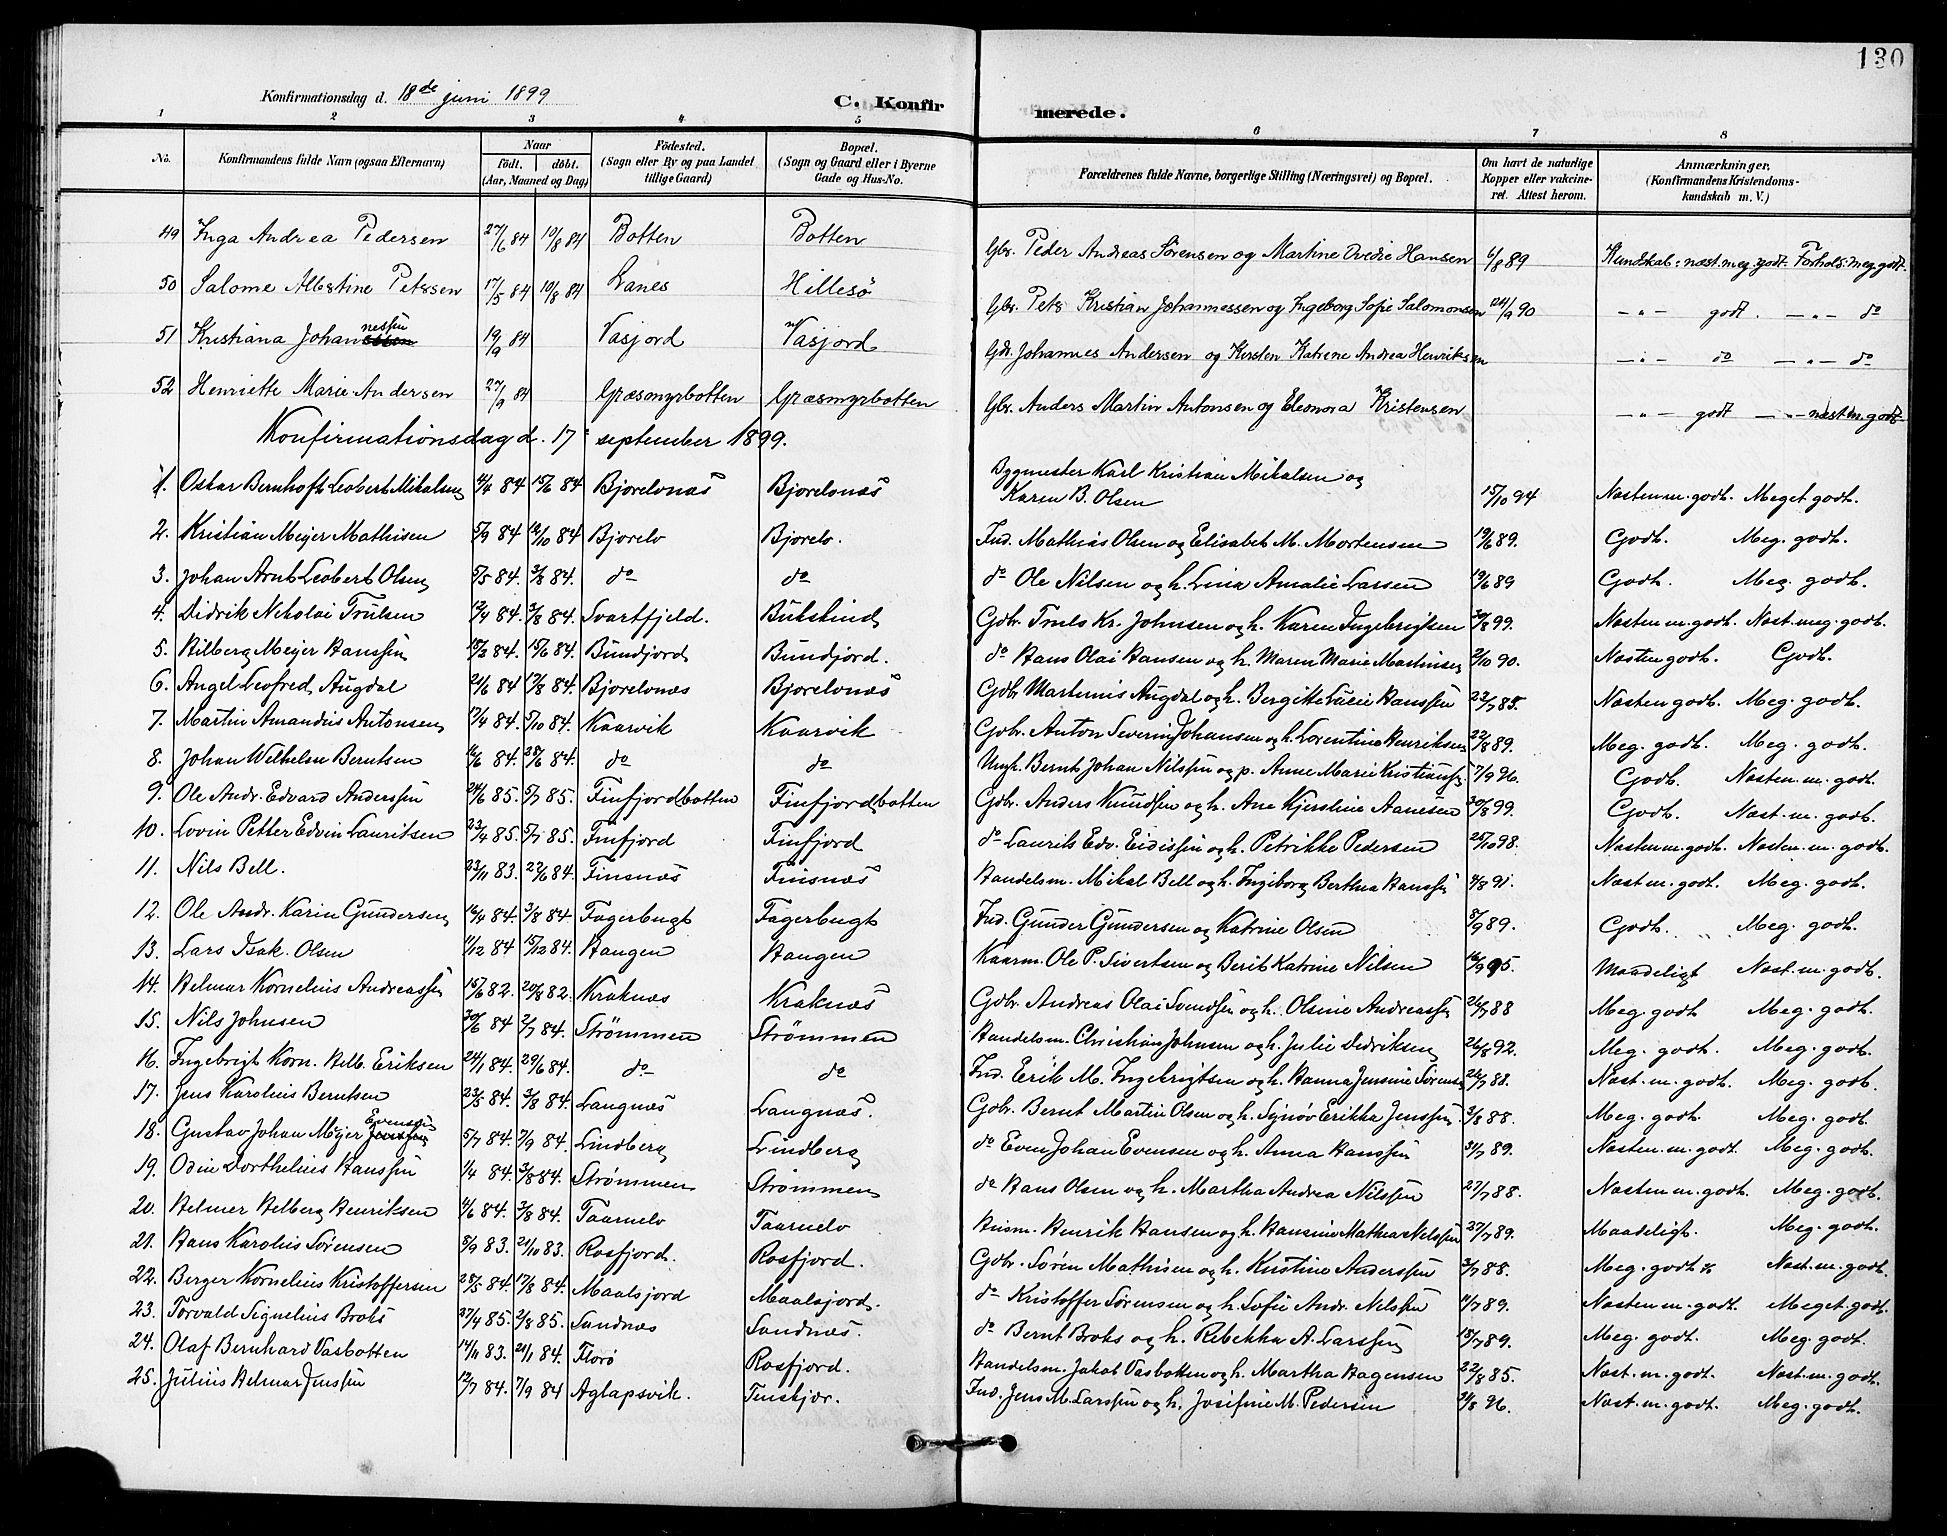 130
Konfirmationsdag d. 18de juni 1899 C. Konfirmerede.
1 2 3 4 5 6 7 8
No. Konfirmandens fulde Navn (ogsaa Efternavn) Naar født. døbt. (Aar, Maaned og Dag) Fødested. (Sogn eller By og paa Landet tillige Gaard) Bopæl. (Sogn og Gaard eller i Byerne Gade og Hus-No. Forældrenes fulde Navne, borgerlige Stilling (Næringsvei) og Bopæl. Om havt de naturlige Kopper eller vakcineret. Attest herom. Anmærkninger. (Konfirmandens Kristendomskundskab m. V.)
49 Inga Andrea Pedersen 27/6 84 10/8 84 Botten Botten Gbr. Peder Andreas Sørensen og Martine Ovedie Hansen 6/8 89 Kundskab: næst. meg. godt. Forhold: meg. godt.
50 Salome Albertine Petersen 17/5 84 10/8 84 Lanes Hillesö Gbr. Peter Kristian Johannessen og Ingeborg Sofie Salomonsen 24/9 90 — " — godt. — " — do
51 Kristiana Johannessen 19/9 84 Vasjord Vasjord Gbr. Johannes Andersen og Kirsten Katrine Andrea Henriksen — " — do — " — do
52 Henriette Marie Andersen 27/9 84 Græsmyrbotten Græsmyrbotten Gbr. Anders Martin Antonsen og Eleonora Kristensen — " — godt — " — næst m. godt.
Konfirmationsdag d. 17 september 1899.
1. Oskar Bernhoft Leobert Mikalsen 4/4 84 15/6 84 Bjorelvnæs Bjorelvnæs Bygmester Karl Kristian Mikalsen og Karen B. Olsen 15/10 94 Næsten m. godt. Meget godt.
2. Kristian Meyer Mathisen 5/9 84 12/10 84 Bjorelv Bjorelv. Ind. Mathias Olsen og Elisabet M. Mortensen 19/6 89. Godt. Meg. godt.
3. Johan Arnt Leobert Olsen 5/5 84. 3/8 84. do do do Ole Nilsen og h. Lina Amalie Larsen 19/6 89 Godt. Meg. godt.
4. Didrik Nikolai Trulsen 12/4 84. 3/8 84. Svartfjeld. Bukskind Gdbr. Truls Kr. Johnsen og h. Karen Ingebrigtsen 30/8 99. Næsten m. godt. Næst. meg. godt.
5. Hilberg Meyer Hanssen 15/3 84. 15/6 84. Bundjord Bundjord. do Hans Olai Hansen og h. Maren Marie Martinsen 2/10 90. Næsten godt. Godt.
6. Angel Leofred Augdal 21/6 84 17/8 84. Bjorelvnæs Bjorelvnæs Gdbr Martinus Augdal og h. Bergitte Lucie Hanssen 23/7 85. Næsten godt. Meg. godt.
7. Martin Amandus Antonsen 17/4 84. 5/10 84. Kaarvik Kaarvik Gdbr. Anton Severin Johansen og h. Lorentine Henriksen 22/8 89. Meg. godt. Meg. godt.
8. Johan Wilhelm Berntsen 16/6 84. 28/6 84. do do Ungk. Bernt Johan Nilssen og p. Anne Marie Kristianss. 7/9 96. Godt. Næsten. m. godt.
9. Ole Andr. Edvard Anderssen 24/6 85. 5/7 85. Finfjordbotten Finfjordbotten Gdbr. Anders Knudsen og h. Ane Kjerstine Aanesen 30/8 99. Godt. Næst. m. godt.
10. Lovin Petter Edvin Lauritsen 23/4 85. 5/7 85. Finfjord Finfjord do Laurits Edv. Eidissen og h. Petrikke Pedersen 25/10 98. Næsten m. godt. Næsten. m. godt.
11. Nils Bell. 23/11 83. 22/6 84. Finsnæs Finsnæs Handelsm. Mikal Bell og h. Ingeborg Berthea Hanssen 4/8 91. Næst m. godt. Meg. godt.
12. Ole Andr. Karin Gundersen 16/4 84. 3/8 84. Fagerbugt Fagerbugt Ind. Gunder Gundersen og Katrine Olsen 8/9 89. Godt. Meg. godt.
13. Lars Isak. Olsen 11/12 84 15/12 84. Haugen Haugen Kaarm. Ole P. Sivertsen og Berit Katrine Nilsen 16/9 95. Maadeligt Næst. m. godt.
14. Helmar Kornelius Andreassen 15/6 82. 20/8 82. Kraknæs Kraknæs Gdbr. Andreas Olai Svendsen og h. Olsine Andreassen 26/7 88 Meg. godt Meg. godt.
15. Nils Johnsen 30/6 84 2/7 84. Strömmen Strömmen Handelsm. Christian Johnsen og h. Julie Didriksen 26/8 92. Meg. godt. Meg. godt.
16. Ingebrigt Korn. Helb. Eriksen 24/1 84. 29/6 84. do do Ind. Erik M. Ingebrigtsen og h. Hanna Jensine Sørensen 26/7 88. Næst. m. godt. Meg. godt.
17. Jens Karolius Berntsen 23/5 84. 3/8 84. Langnæs Langnæs. Gdbr. Bernt Martin Olsen og h. Synøv Erikka Jenssen 3/8 88. Meg. godt. Meg. godt.
18. Gustav Johan Meyer Evensen 5/7 84. 7/9 84. Lindberg Lindberg do Even Johan Evensen og h. Anna Hanssen 31/7 89. Næsten. m. godt. Meg. godt.
19. Odin Dorthelius Hanssen 1/4 84. 3/8 84. Strømmen Strømmen do Hans Olsen og h. Martha Andrea Nilssen 27/7 88. Næsten m. godt. Meg. godt.
20. Helmer Helberg Henriksen 4/6 84. 3/8 84. Taarnelv Taarnelv Husm. Henrik Hansen og h. Hansine Mathea Nilssen 27/7 89. Maadeligt. Meg. godt.
21. Hans Karolius Sørensen 8/9 83. 21/10 83. Rosfjord. Rosfjord. Gdbr. Søren Mathisen og h. Kristine Anderssen 3/7 88. Meg. godt Næst. m. godt.
22. Berger Kornelius Kristoffersen 28/5 84. 17/8 84. Maalsjord Maalsjord. do Kristoffer Sørensen og h. Sofie Andr. Nilssen 11/7 89. Næsten m. godt. Meget. godt.
23. Torvald Signelius Broks 27/4 85. 2/8 85. Sandnæs Sandnæs. do Bernt Broks og h. Rebekka A. Larssen 18/7 89. Meg. godt. Meg. godt.
24. Olaf Bernhard Vasbotten 14/11 83. 21/1 84. Florø Rosfjord. Handelsm. Jakob Vasbotten og h. Martha Hagensen 22/8 85. Næst. m. godt. Næst. m. godt.
25. Julius Helmar Jenssen 12/7 84. 7/9 84 Aglapsvik. Tenskjær. Ind. Jens M. Larssen og h. Josefine M. Pedersen 21/8 96. Næst. m. godt. Meg. godt.